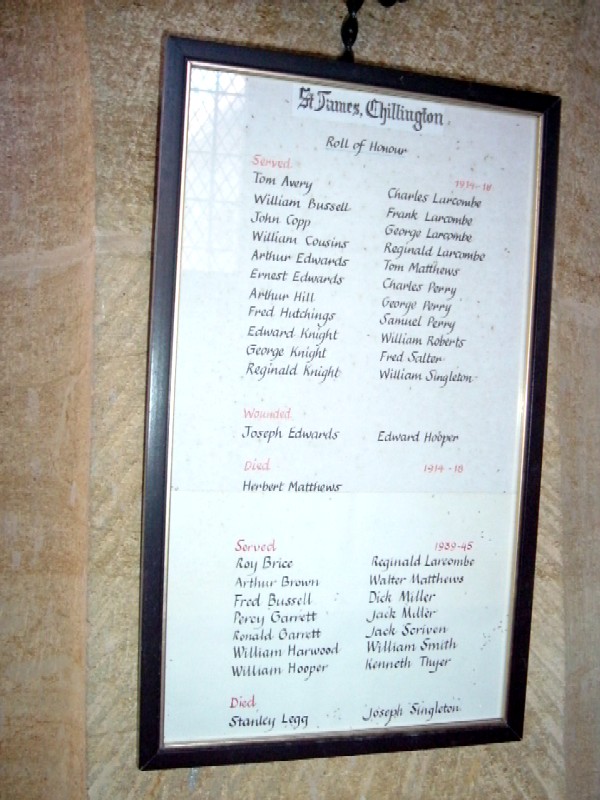 St James, Chillington
Roll of Honour
Served 1914-18
Tom Avery Charles Larcombe
William Bussell Frank Larcombe
John Copp George Larcombe
William Cousins Reginald Larcombe
Arthur Edwards Tom Matthews
Ernest Edwards Charles Perry
Arthur Hill George Perry
Fred Hutchings Samuel Perry
Edward Knight William Roberts
George Knight Fred Salter
Reginald Knight William Singleton
Wounded
Joseph Edwards Edward Hooper
Died 1914-18
Herbert Matthews
Served 1939-45
Roy Brice Reginald Larcombe
Arthur Brown Walter Matthews
Fred Bussell Dick Miller
Percy Garrett Jack Miller
Ronald Garrett Jack Scriven
William Harwood William Smith
William Hooper Kenneth Thyer
Died
Stanley Legg Joseph Singleton